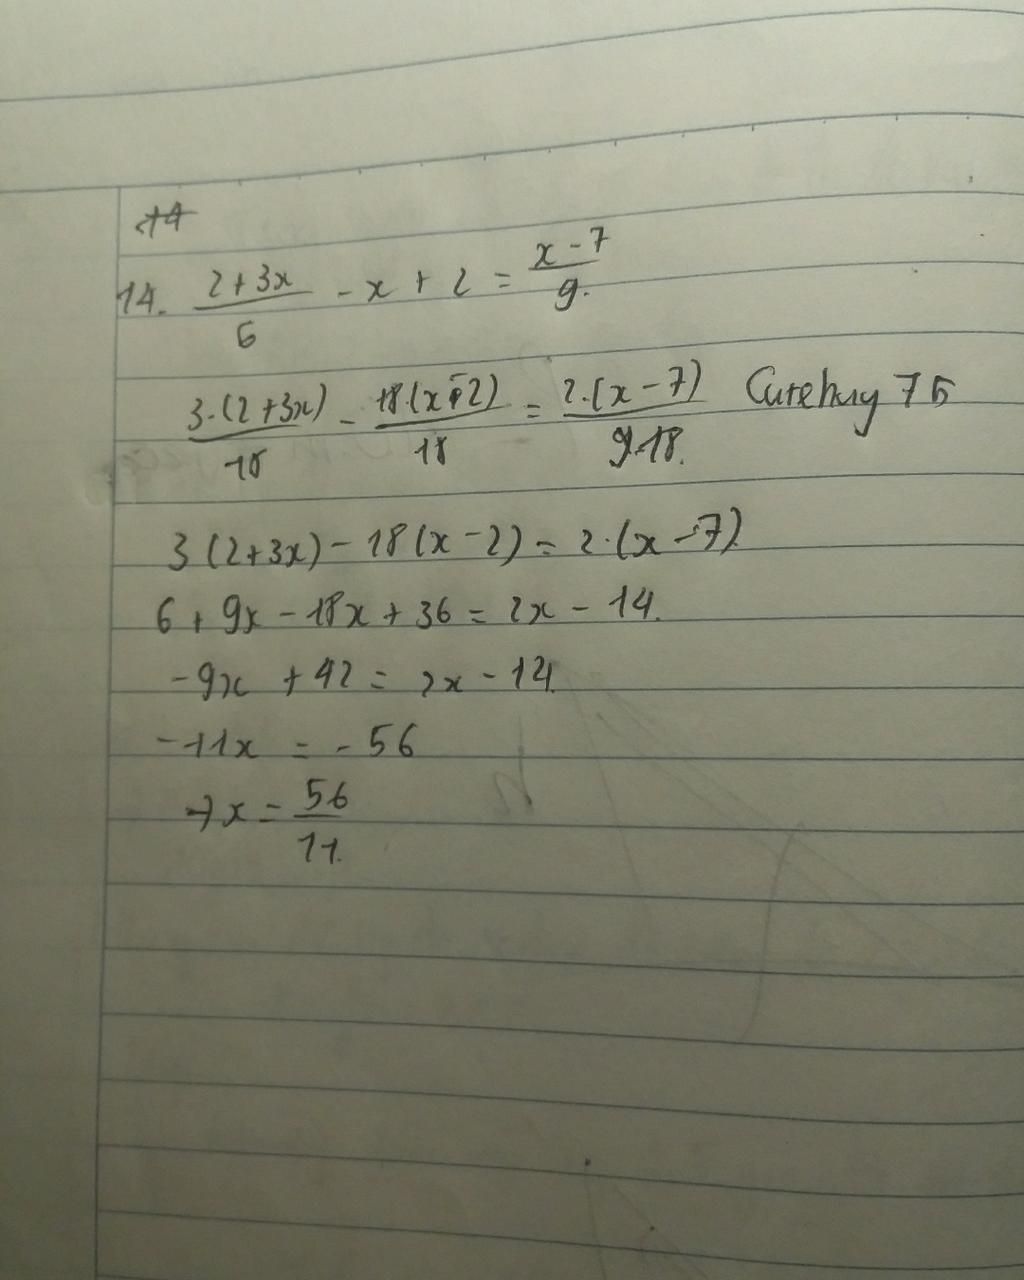 14. (2+3x)/6 - x + 2 = (x-7)/9.
3.(2+3x)/18 - 18.(x-2)/18 = 2.(x-7)/18. 7B
3(2+3x)-18(x-2) = 2.(x-7)
6+9x-18x+36 = 2x-14.
-9x +42 = 2x-14.
-11x = -56
→x = 56/11.